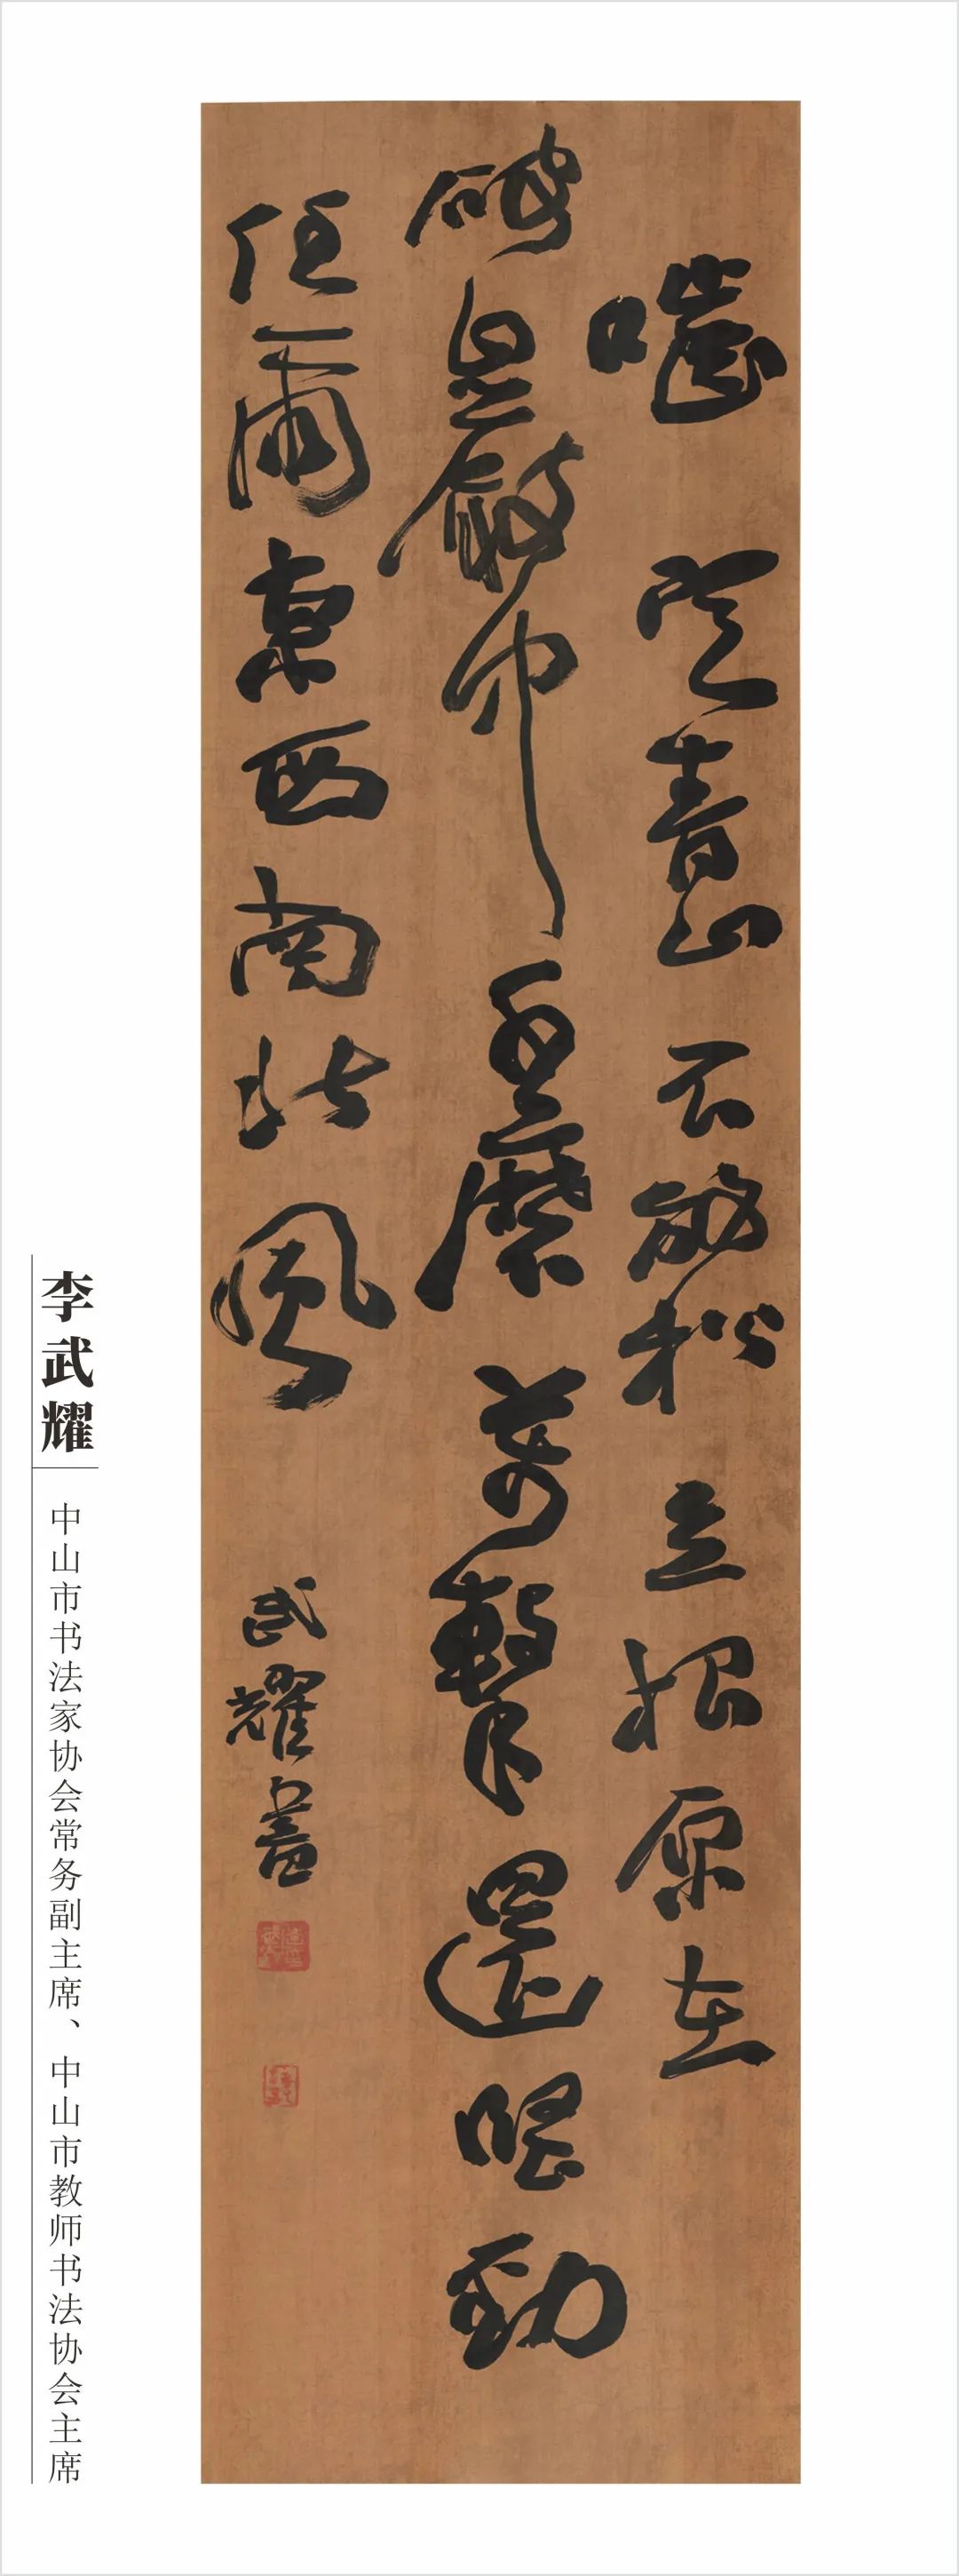 嚙定青山不放松立根原在
破巖中千磨萬擊還堅勁
任爾東西南北風
武耀書
李武耀
中山市书法家协会常务副主席、中山市教师书法协会主席